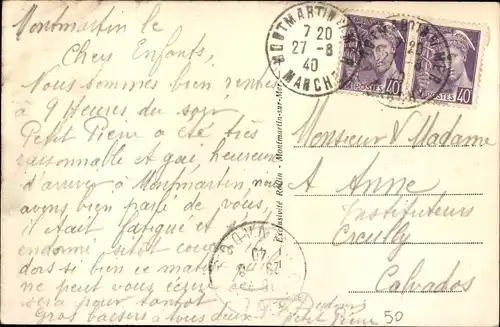 Montmartin le
Chers Enfants,
Nous sommes bien rentrés
à 9 Heures du soir
Petit Pierre a été très
raisonnable et gai, heureux
d'arriver à Montmartin, nous
avons bien parlé de vous,
il était fatigué et s'est
endormi sitôt
dors si bien ce matin
ne peut vous écrire
sera pour tantôt
Gros baisers à tous deux
Petit Pierre
Exclusivité Rodin - Montmartin-sur-Mer
MONTMARTIN
7 20
27 -8
40
MANCHE
POSTES 40
POSTES 40
Monsieur & Madame
A Anne
Instituteurs
Creully
Calvados
50